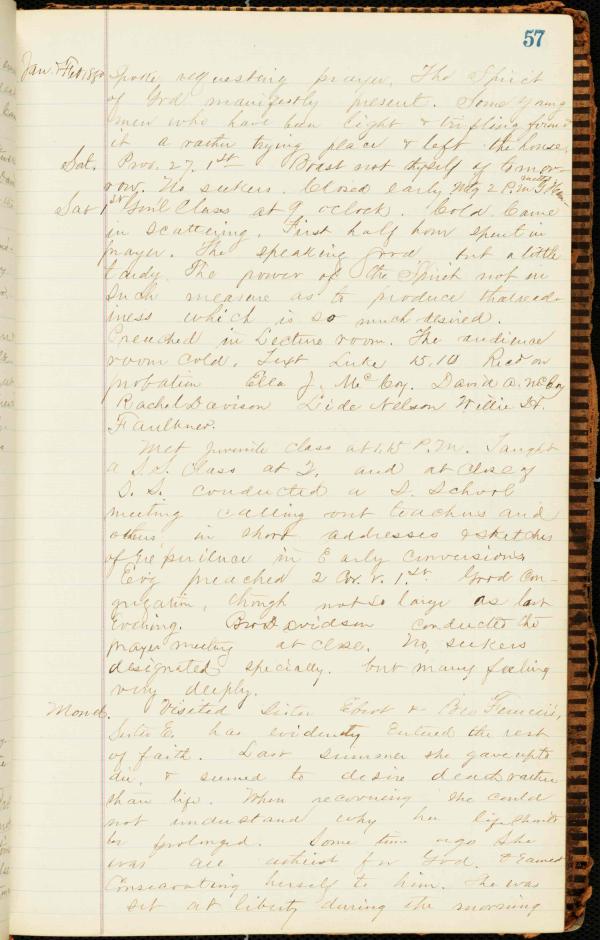 57
Jan. & Feb 1880 Spoke requesting prayer. The Spirit
of God manifestly present. Some young
men who have been light & trifling found
it a rather trying place & left the house.
Sat. Prov. 27. 1st Boast not thyself of tomor-
row. No seekers. Closed early. Mtg 2 P.M.
Sab 1st Gen'l Class at 9 oclock. Cold. Came
in scattering. First half hour spent in
prayer. The speaking good, but a little
tardy. The power of the Spirit not in
such measure as to produce that read-
iness which is so much desired.
Preached in Lecture room. The audience
room cold. Text Luke 15.10 Recd on
probation Ella J. McCoy. David A. McCoy
Rachel Davison Lide Nelson Willie
Faulkner.
Met juvenile class at 1.15 P.M. Taught
a S.S. Class at 2, and at close of
S. S. conducted a S. School
meeting calling out teachers and
others in short addresses & sketches
of experience in Early conversions
Ev'g preached 2 Cor. V. 1st Good con-
gregation, though not so large as last
Evening. Bro Davidson conducted the
prayer meeting at close. No seekers
designated specially. but many feeling
very deeply.
Mond. Visited Sister & Bro
Sister E. has evidently Entered the rest
of faith. Last summer she gave up to
die, & seemed to desire death rather
than life. When recovering she could
not understand why her life should
be prolonged. Some time ago she
was all for God. &
Consecrating herself to him. She was
set at liberty during the morning